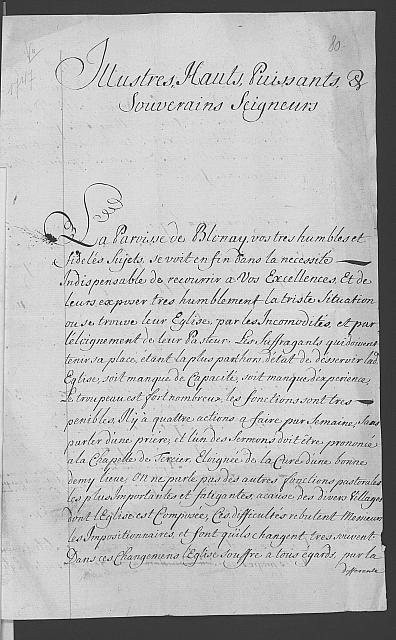 80.
1747
Illustres, Hauts, Puissants, &
Souverains Seigneurs
La Paroisse de Blonay, vos tres humbles et
fideles Sujets, se voit en fin dans la necessité
Indispensable de recourrir a Vos Excellences, Et de
leurs exposer tres humblement la triste Situation
ou se trouve leur Eglise, par les Incomodités, et par
l'eloignement de leur Pasteur. Les Suffragants qui doivent
tenir sa place, etant la plus part hors d'etat de desservir lad.
Eglise, soit manque de Capacité, soit manque d'experience,
Le troupeau est fort nombreux, les fonctions sont tres
penibles, Il y a quattre actions a faire par Semaine, Sans
parler d'une priere, et l'un des Sermons doit être prononcé
a la Chapelle de Tercier, Eloignée de la Cure d'une bonne
demy lieue, On ne parle pas des autres fonctions pastorales
les plus Importantes et fatigantes, a cause des divers Villages
dont l'Eglise est Composée, Ces difficultés rebutent Messieurs
les Impositionnaires, et font qu'ils changent tres souvent
Dans ces Changemens l'Eglise souffre a tous egards, par la
differente